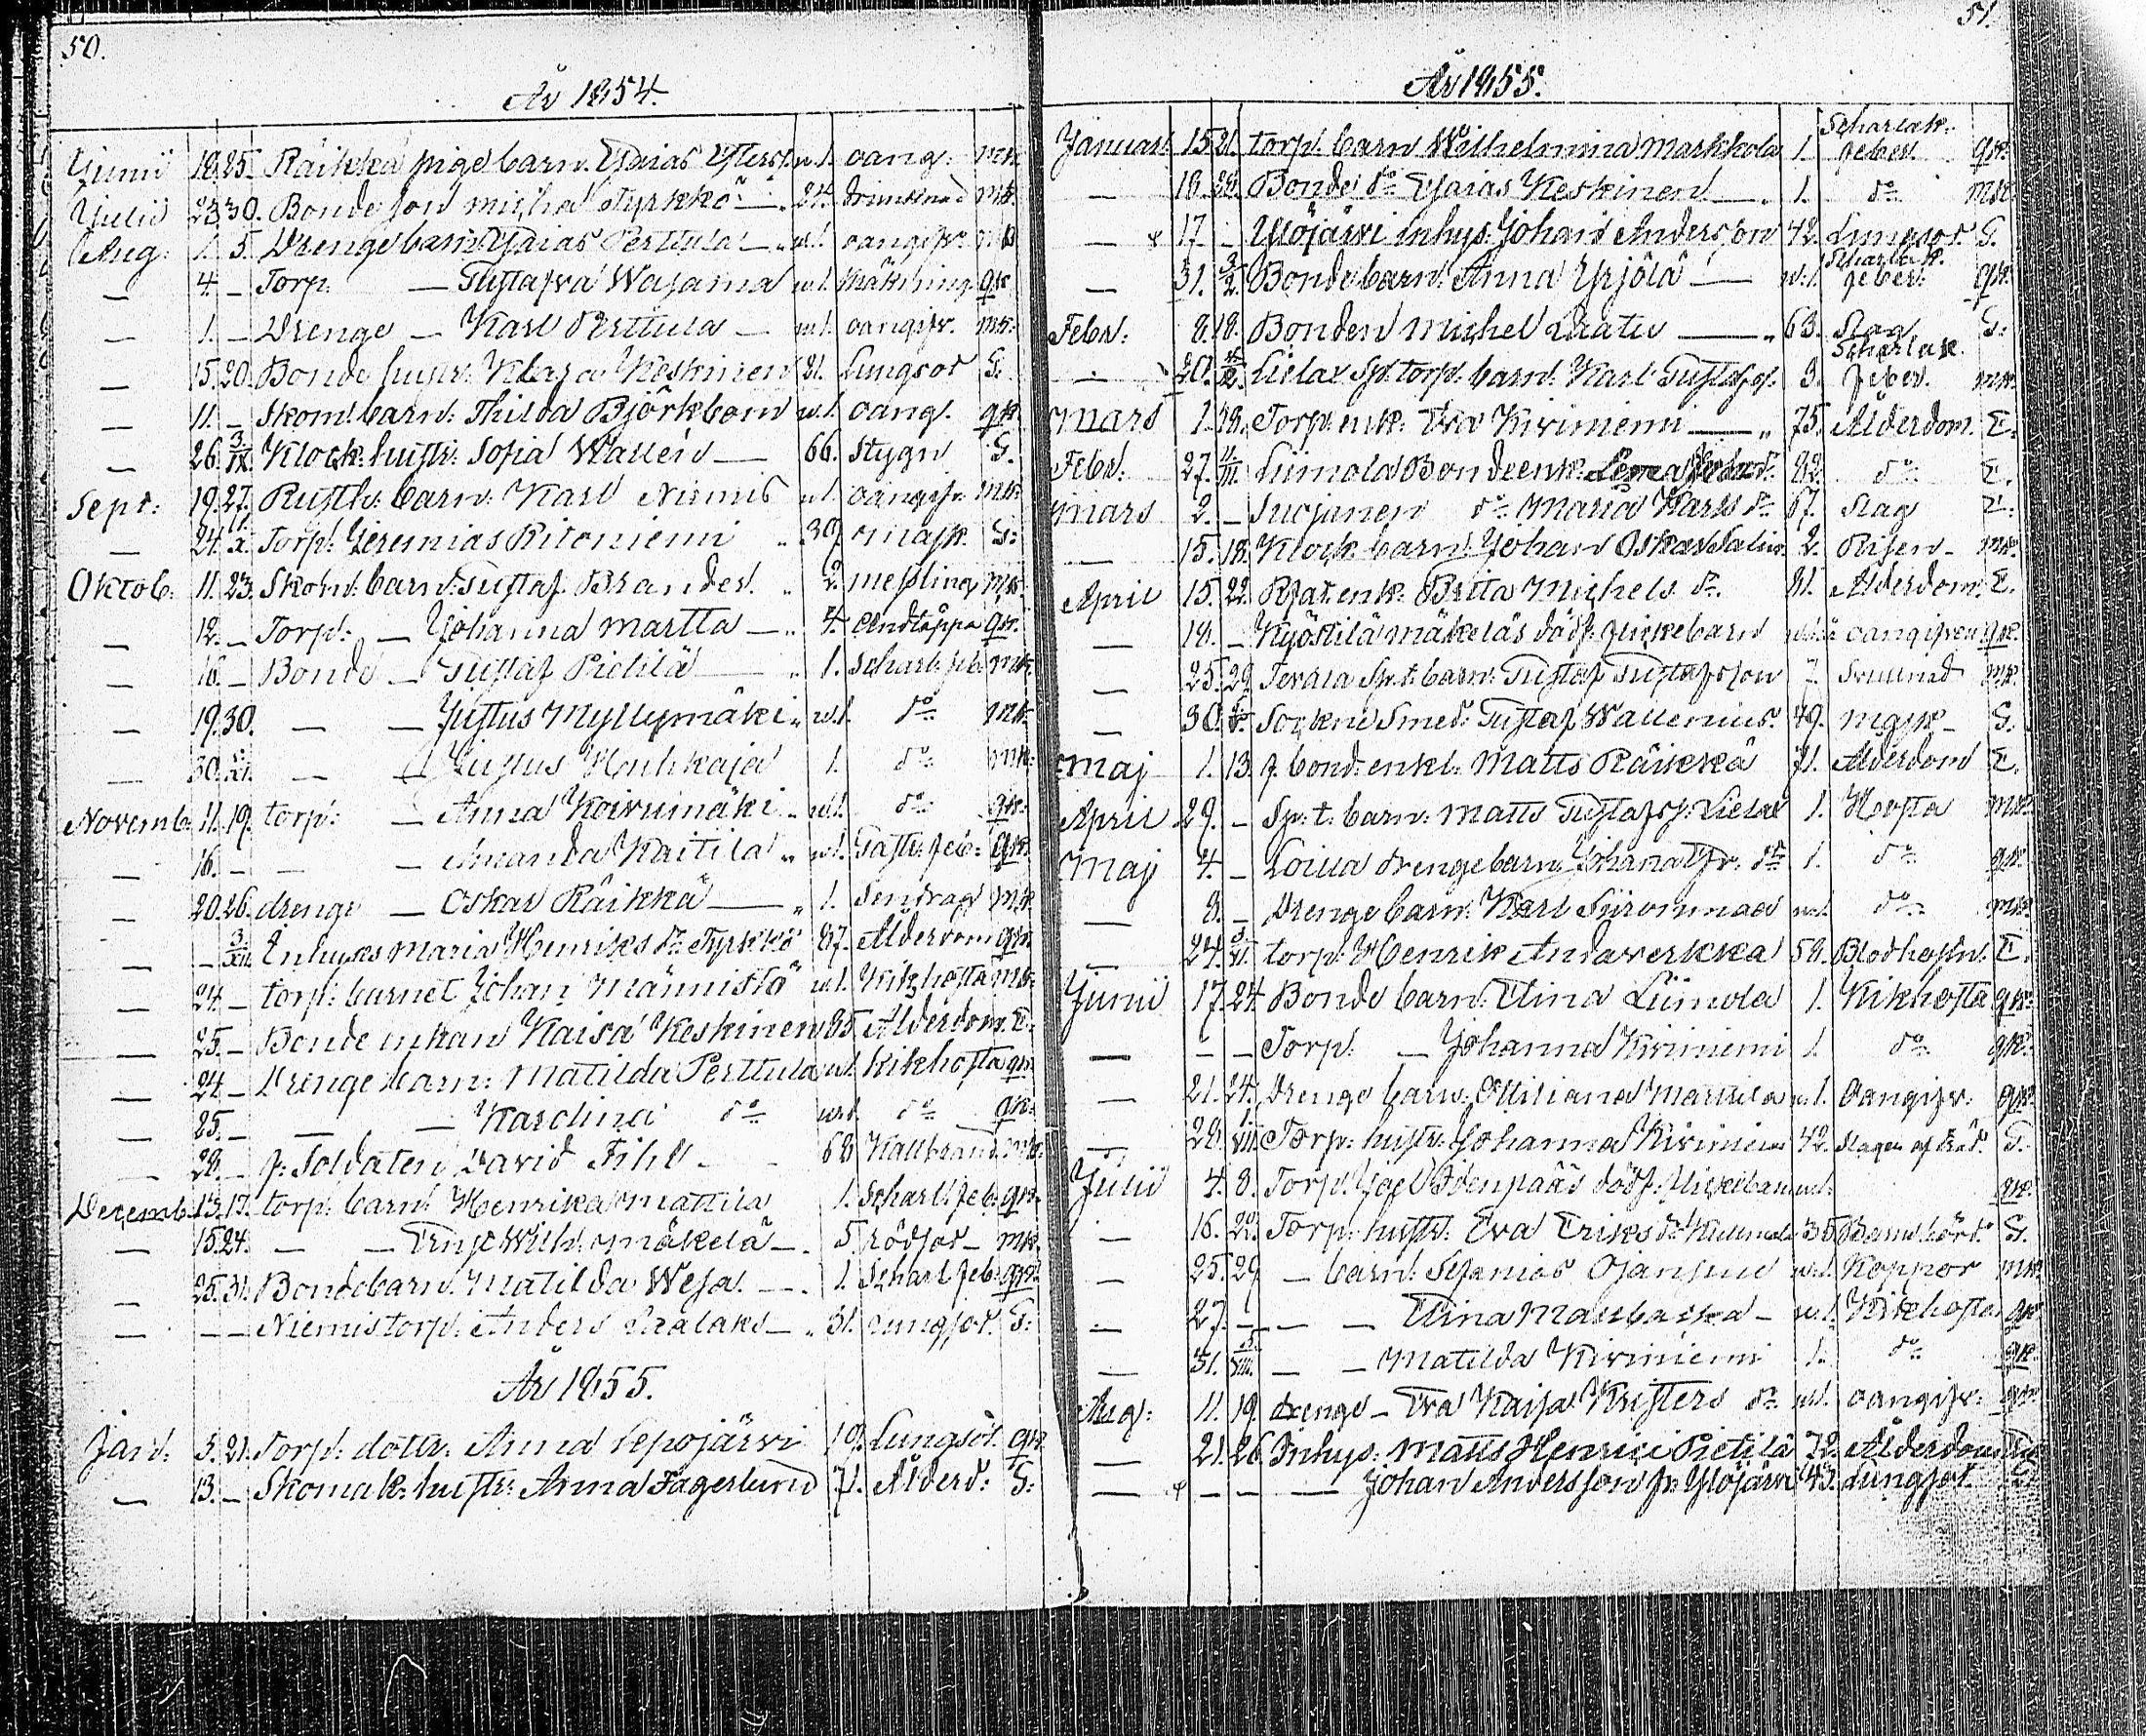 50.
År 1854.
Junii 18. 25. Räikkä pige barn. Esaias Ysterst. u.1. oang. mk.
Julii 23. 30. Bonde son Michel Tyrkkö 24. Drunknad mk.
Aug: 1. 5. Drenge barn Esaias Perttula u.1. oangifv. mk.
— 4. — Torp. — Gustafva Wajama u.1. qk.
— 1. — Drenge — Karl Perttula — u.1. oangifv. mk.
— 15. 20. Bonde hustr. Klara Keskinen 21. Lungsot G.
— 11. — Skom. barn: Thilda Björkbom u.1. oang. qk.
— 26. 3/IX. Klock. hustr: Sofia Wallén — 66. Stygn G.
Sept: 19. 27. Rusth. barn: Karl Niemis u.1. oangifv. mk.
— 24. 1/X. Torp: Jeremias Ritoniemi 39. mask G:
Oktob: 11. 23. Skom. barn: Gustaf Brander. 2. messling mk.
— 12. — Torp: — Johanna Martta — 4. Andtäppa qk.
— 16. — Bonde — Gustaf Pietilä — 1. Scharl. feb. mk.
— 19. 30. — — Justus Myllymäki u.1. do mk.
— 30. /XI. — — Justus Huhkaja 1. do mk.
Novemb. 11. 19. torp: — Anna Koivumäki u.1. do qk:
— 16. — — — Amanda Kaitila u.1. Gastr. feb: qk.
— 20. 26. drenge — Oskar Räikkä — 1. Sendrag mk.
— — 3/XII. Inhyses Maria Henriks dr. Tyrkkö 87. Ålderdom qk.
— 24. — torp: barnet Johan Männistö u.1. Kikhosta mk.
— 25. — Bonde enkan Kaisa Keskinen 85. Ålderdom. E.
— 24. — Drenge barn: Matilda Perttula u.1. Kikhosta qk.
— 25. — — — Karolina do u.1. do qk.
— 28. — f. Soldaten David Fihl — 68 Kallbrand mk.
Decemb. 13. 17. torp: barn. Henrika Mattila 1. Scharl. feb. qk.
— 15. 24. — — Ernst Wilh: Mäkelä — 5. rödsot — mk.
— 25. 31. Bonde barn. Matilda Wesa. — 1. Scharl. feb: qk.
— — — Niemis torp. Anders 31. Lungsot. G:
År 1855.
Jan: 3. 21. Torp: dottr. Anna Lepojärvi 19. Lungsot. qk.
— 13. — Skomak. hustr: Anna Fagerlund 71. Ålderd: G:
51.
År 1855.
Januar: 15. 21. torp: barn Wilhelmina Markkola 1. Scharlak. feber. qk.
— 18. 28. Bonde do Esaias Keskinen — 1. do mk.
— 17 — Ylöjärvi inhys. Johan Andersson 42. Lungsot. G.
— 31. 3/2. Bonde barn: Anna Yrjölä — u.1. Scharlak. feber. qk.
Febr: 8. 18. Bonden Michel Laatu — 63. Slag G:
— 20. Lielax Sp. torp. barn. Karl Gustafss. 3. Scharlak. feber. mk.
Mars 1. 18. Torp. enk: Eva Kiviniemi — 75. Ålderdom. E.
Febr: 27. /III. Liimola Bonde enk. 82. do E.
Mars 2. — Suojanen do Maria Karls dr 67. Slag E.
— 15. 18. Klock. barn: Johan Oskar Salin 2. Risen — mk.
April 15. 22. enk: Brita Michels dr. 81. Ålderdom. E.
— 18. — Kyöstilä Mäkeläs dödf. flickebarn oangifven qk.
— 25. 29. Sp. t. barn: Gustaf Gustafsson 7. mk.
— 30. Sockne Smed: Gustaf Wallenius 49. mask — G.
Maj 1. 13. f. bond: enkl: Matts Räikkä 71. Ålderdom E.
April 29. — Sp. t. barn: Matts Gustafss. Lielax 1. Hosta mk.
Maj 4. — drenge barn: Johanna dr 1. do qk.
— 8. — Drenge barn: Karl Siironmaa u.1. do mk.
— 24. 3/VI. torp. Henrik Antaverkka 59. Blodhostn. E.
Junii 17. 24. Bonde barn: Elina Liimola 1. Kikhosta qk.
— — — Torp: — Johanna Kiviniemi 1. do qk.
— 21. 24. Drenge barn: Ottiliana Mattila u.1. Oangifv. qk.
— 28. 1/VII. Torp: hustr. Johanna Kiviniemi 42. Slagen af träd. G.
Julii 4. 8. Torp. Joel dödf. flickebarn qk.
— 16. 22. Torp: hustr. Eva Eriks dr 35. Barnsbörd. G.
— 25. 29 — barn: Sefanias Ojansuu u.1. Koppor mk.
— 27. — — — Elina u.1. Kikhosta qk.
— 31. 5/VIII. — — Matilda Kiviniemi 1. do qk.
Aug: 11. 19. drenge — Eva Kaisa Kristers dr u.1. oangifv. qk.
— 21. 26. Inhys: Matts Henrici Pietilä 72. Ålderdom
— — — — Johan Andersson fr. Ylöjärvi 43. Lungsot. G.